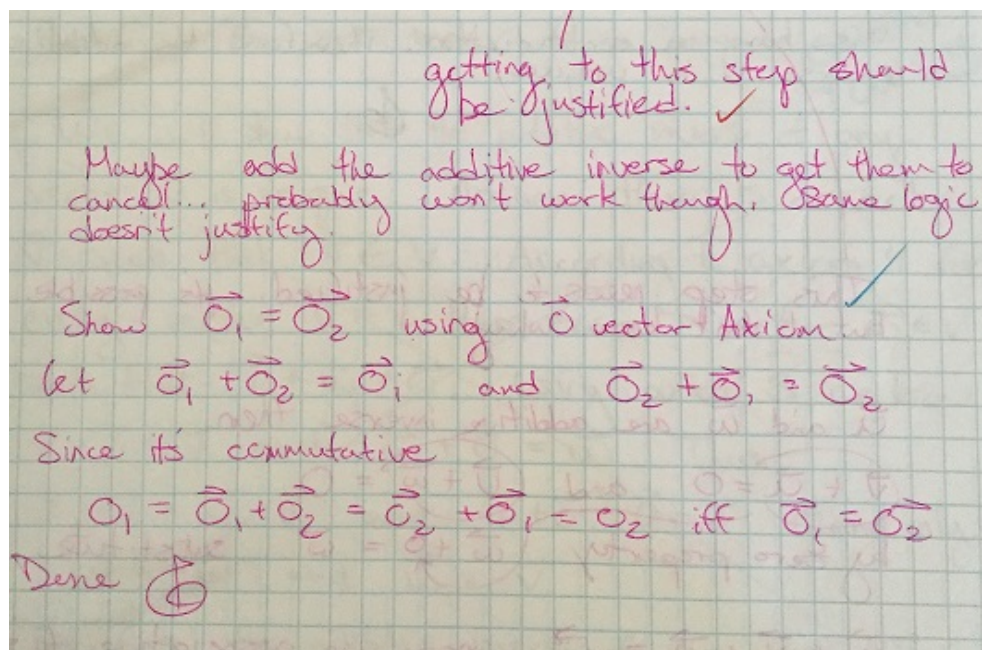 getting to this step should
be justified. ✓
Maybe add the additive inverse to get them to
cancel... probably won't work though. Same logic
doesn't justify.
Show \vec{O}_1 = \vec{O}_2 using \vec{O} vector Axiom. ✓
let \vec{O}_1 + \vec{O}_2 = \vec{O}_1 and \vec{O}_2 + \vec{O}_1 = \vec{O}_2
Since it's commutative
O_1 = \vec{O}_1 + \vec{O}_2 = \vec{O}_2 + \vec{O}_1 = O_2 iff \vec{O}_1 = \vec{O}_2
Done